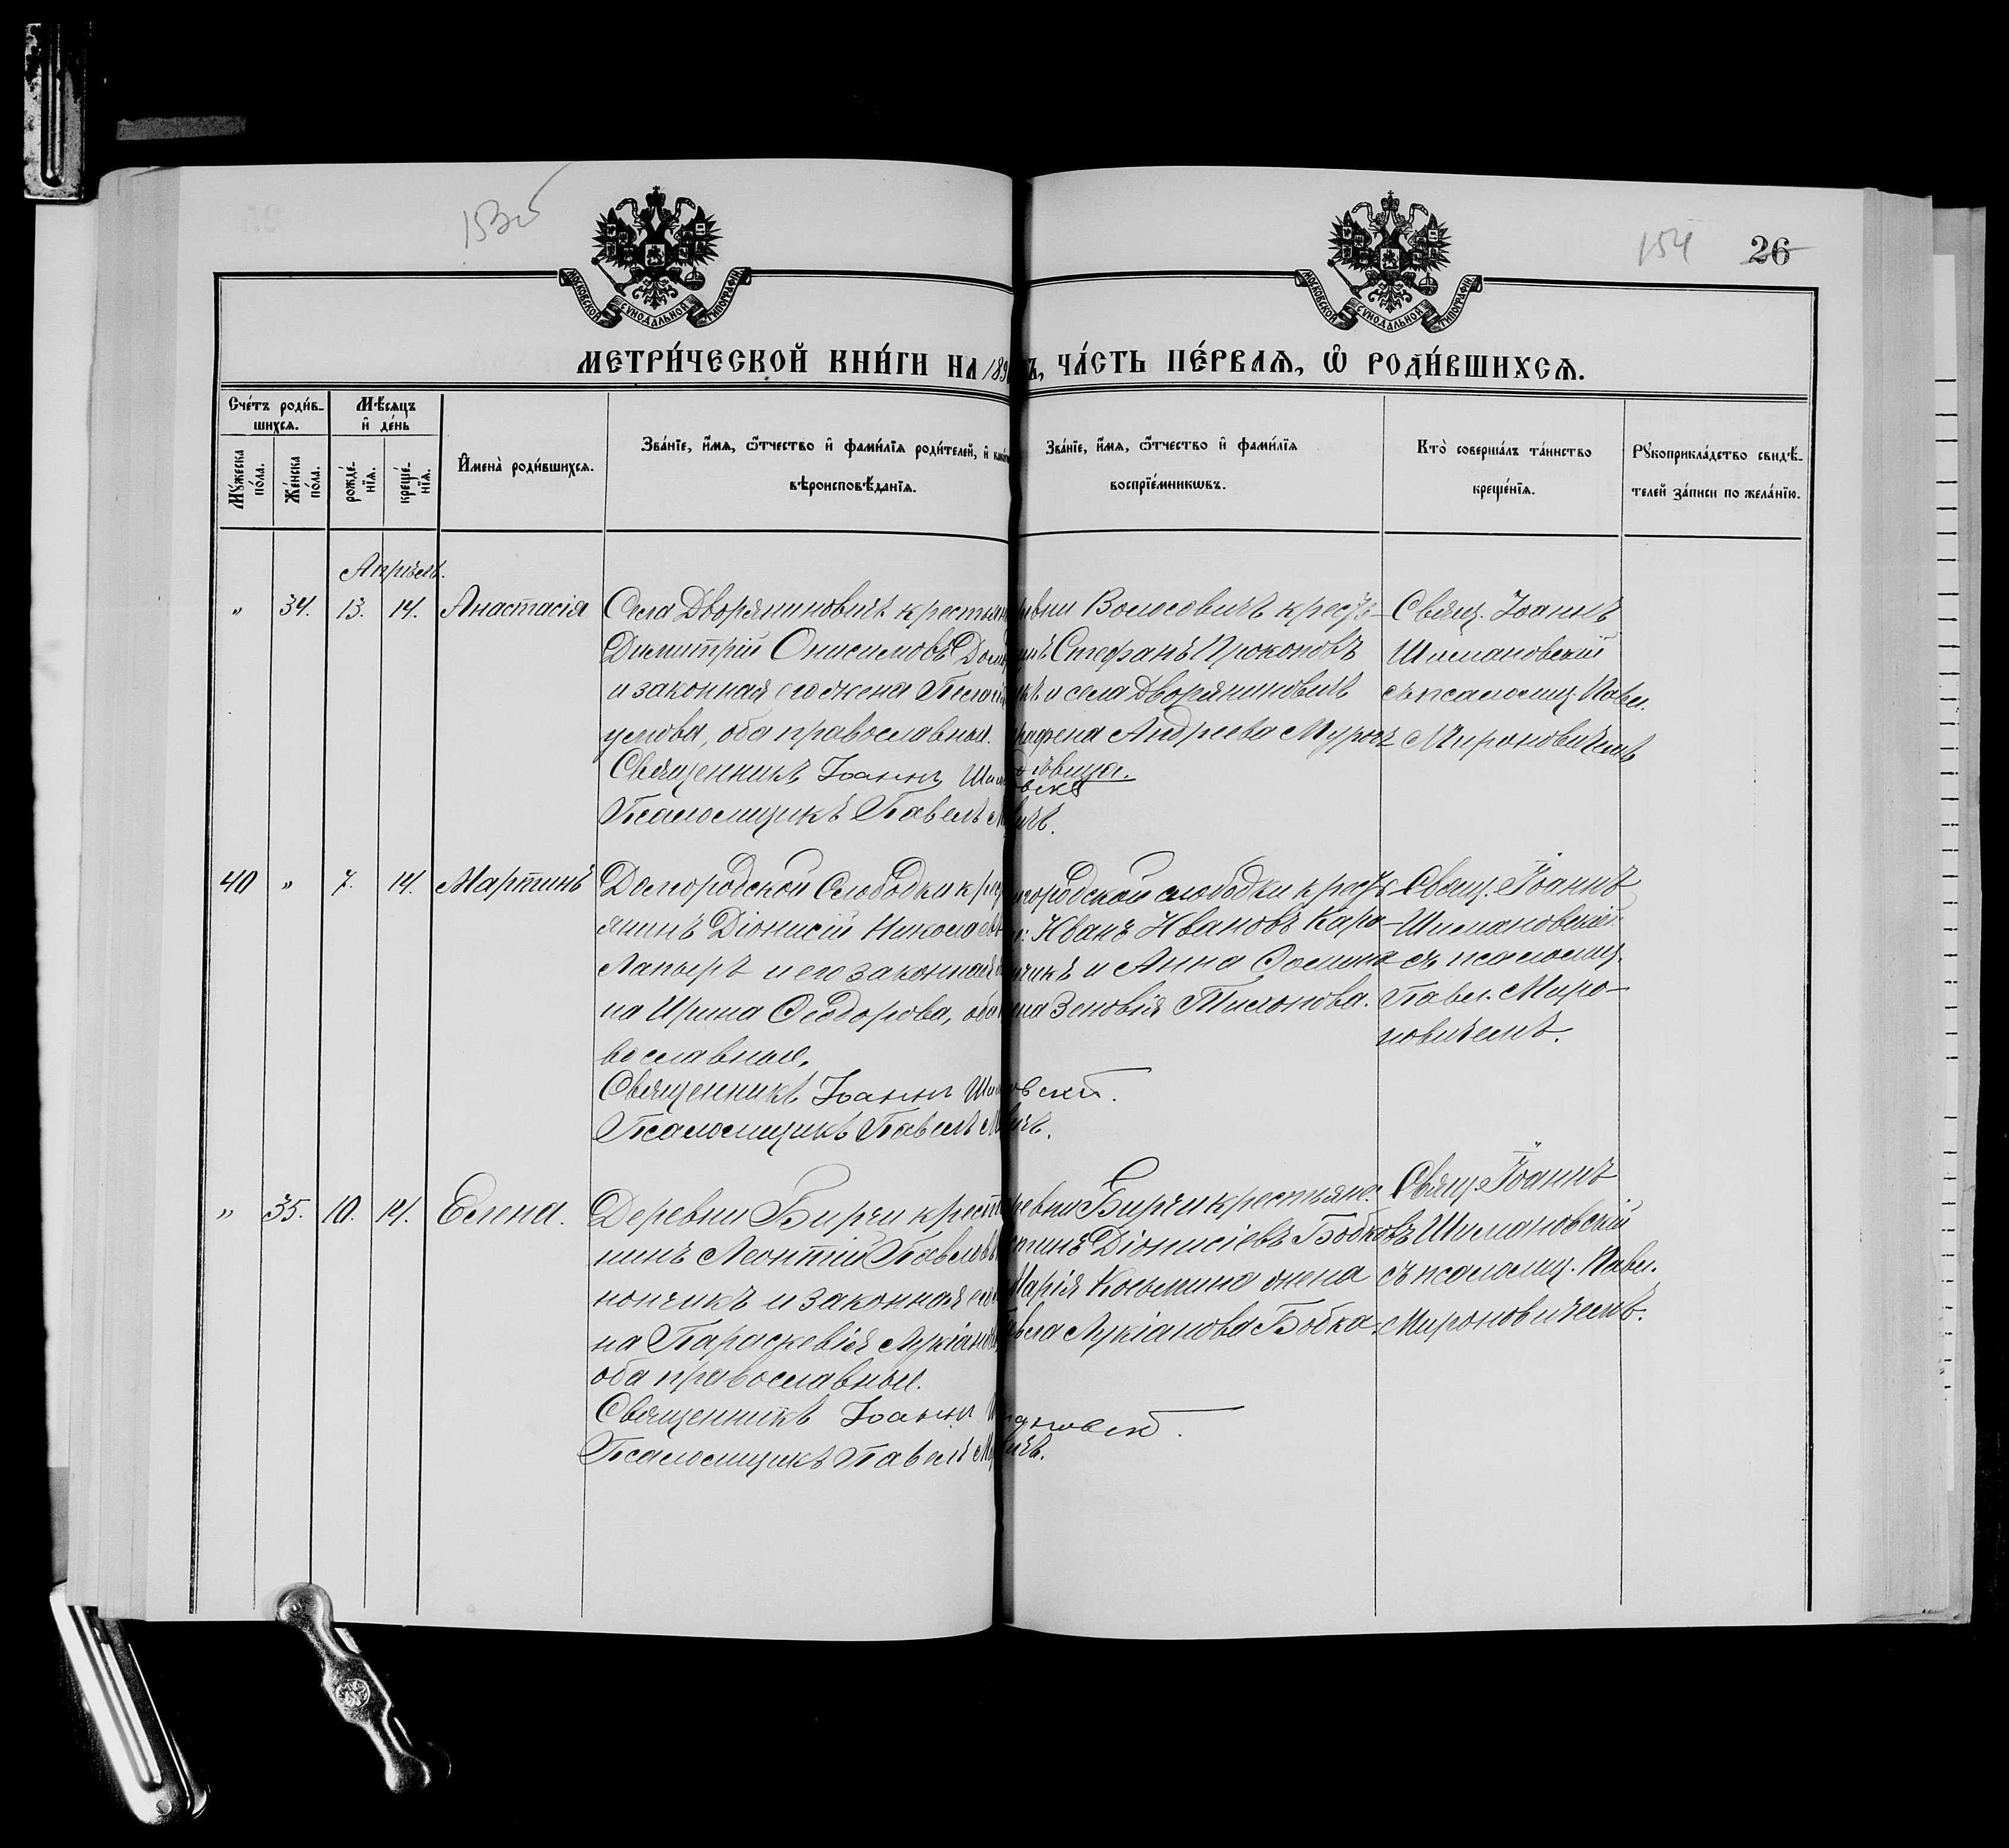 153об
154 26
МОСКОВСКОЙ СУНОДАЛЬНОЙ ТИПОГРАФІИ
МОСКОВСКОЙ СУНОДАЛЬНОЙ ТИПОГРАФІИ
МЕТРИ́ЧЕСКОЙ КНИ́ГИ НА 189 ЧА́СТЬ ПЕ́РВАѦ, Ѡ҆ РОДИ́ВШИХСѦ.
Сче́тъ роди́в-
шихсѧ.
Мꙋ́жеска по́ла.
Же́нска по́ла.
Мѣ́сѧцъ
и҆ де́нь
рожде́-нїѧ.
креще́-нїѧ.
И҆мена̀ роди́вшихсѧ.
Зва́нїе, и҆́мѧ, ѻ҆́тчество и҆ фами́лїѧ роди́телей, и҆
вѣроисповѣ́данїѧ.
Зва́нїе, и҆́мѧ, ѻ҆́тчество и҆ фами́лїѧ
воспрїе́мникѡвъ.
Кто̀ соверша́лъ та́инство
креще́нїѧ.
Рꙋкоприкла́дство свидѣ́-
телей за́писи по жела́нїю.
Апрѣль.
" 34. 13. 14. Анастасія
Села Дворяниновичъ крестьян
Димитрій Онисимовъ
и законная его жена
оба православные.
Священникъ Іоаннъ
Псаломщикъ Павелъ
Волосовичъ крест-
Стефанъ Прокоповъ
и села Дворяниновичъ
Андреева
Свящ. Іоаннъ
Шимановскій
съ псаломщ. Павл.
Мироновичемъ
40 " 7. 14. Мартинъ
Домородской Слободки крес
янинъ Діонисій Николаевъ
Лапыръ и его законная
на Ирина Ѳеодорова, оба
вославные.
Священникъ Іоаннъ
Псаломщикъ Павелъ
слободки крест
Иванъ Ивановъ Каро-
и Анна Ѳомина
Зеновія Тимонова.
Свящ. Іоаннъ
Шимановскій
съ псаломщ.
Павл. Миро-
новичемъ.
" 35. 10. 14. Елена.
Деревни Бирчи крест
нинъ Леонтій Павловъ
нончикъ и законная его
на Параскевія Лукіан
оба православные.
Священникъ Іоаннъ
Псаломщикъ Павелъ
Бирчи крестьяне:
Діонисіевъ Бобковъ
Марія Косьмина жена
Лукіанова Бобка.
Свящ. Іоаннъ
Шимановскій
съ псаломщ. Павл.
Мироновичемъ.